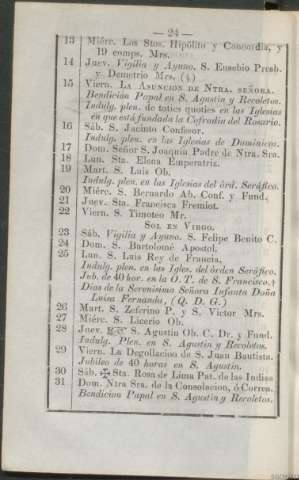 — 24 —
13 Miérc. Los Stos. Hipólito y Concordia, y
19 comps. Mrs.
14 Juev. Vigilia y Ayuno. S. Eusebio Presb.
y Demetrio Mrs. (4)
15 Viern. LA ASUNCION DE NTRA. SEÑORA.
Bendicion Papal en S. Agustin y Recoletos.
Indulg. plen. de toties quoties en las Iglesias
en que está fundada la Cofradía del Rosario.
16 Sáb. S. Jacinto Confesor.
Indulg. plen. en las Iglesias de Dominicos.
17 Dom. Señor S. Joaquin Padre de Ntra. Sra.
18 Lun. Sta. Elena Emperatriz.
19 Mart. S. Luis Ob.
Indulg. plen. en las Iglesias del órd. Seráfico.
20 Miérc. S. Bernardo Ab. Conf. y Fund.
21 Juev. Sta. Francisca Fremiot.
22 Viern. S. Timoteo Mr.
SOL EN VIRGO.
23 Sáb. Vigilia y Ayuno. S. Felipe Benito C.
24 Dom. S. Bartolomé Apostol.
25 Lun. S. Luis Rey de Francia.
Indulg. plen. en las Igles. del órden Seráfico.
Jub. de 40 hor. en la O. T. de S. Francisco.†
Dias de la Serenísima Señora Infanta Doña
Luisa Fernanda, (Q. D. G.)
26 Mart. S. Zeferino P. y S. Victor Mrs.
27 Miérc. S. Licerio Ob.
28 Juev. S. Agustin Ob. C. Dr. y Fund.
Indulg. Plen. en S. Agustin y Recoletos.
29 Viern. La Degollacion de S. Juan Bautista.
Jubileo de 40 horas en S. Agustin.
30 Sáb. ✠ Sta. Rosa de Lima Pat. de las Indias
31 Dom. Ntra Sra. de la Consolacion, ó Correa.
Bendicion Papal en S. Agustin y Recoletos.